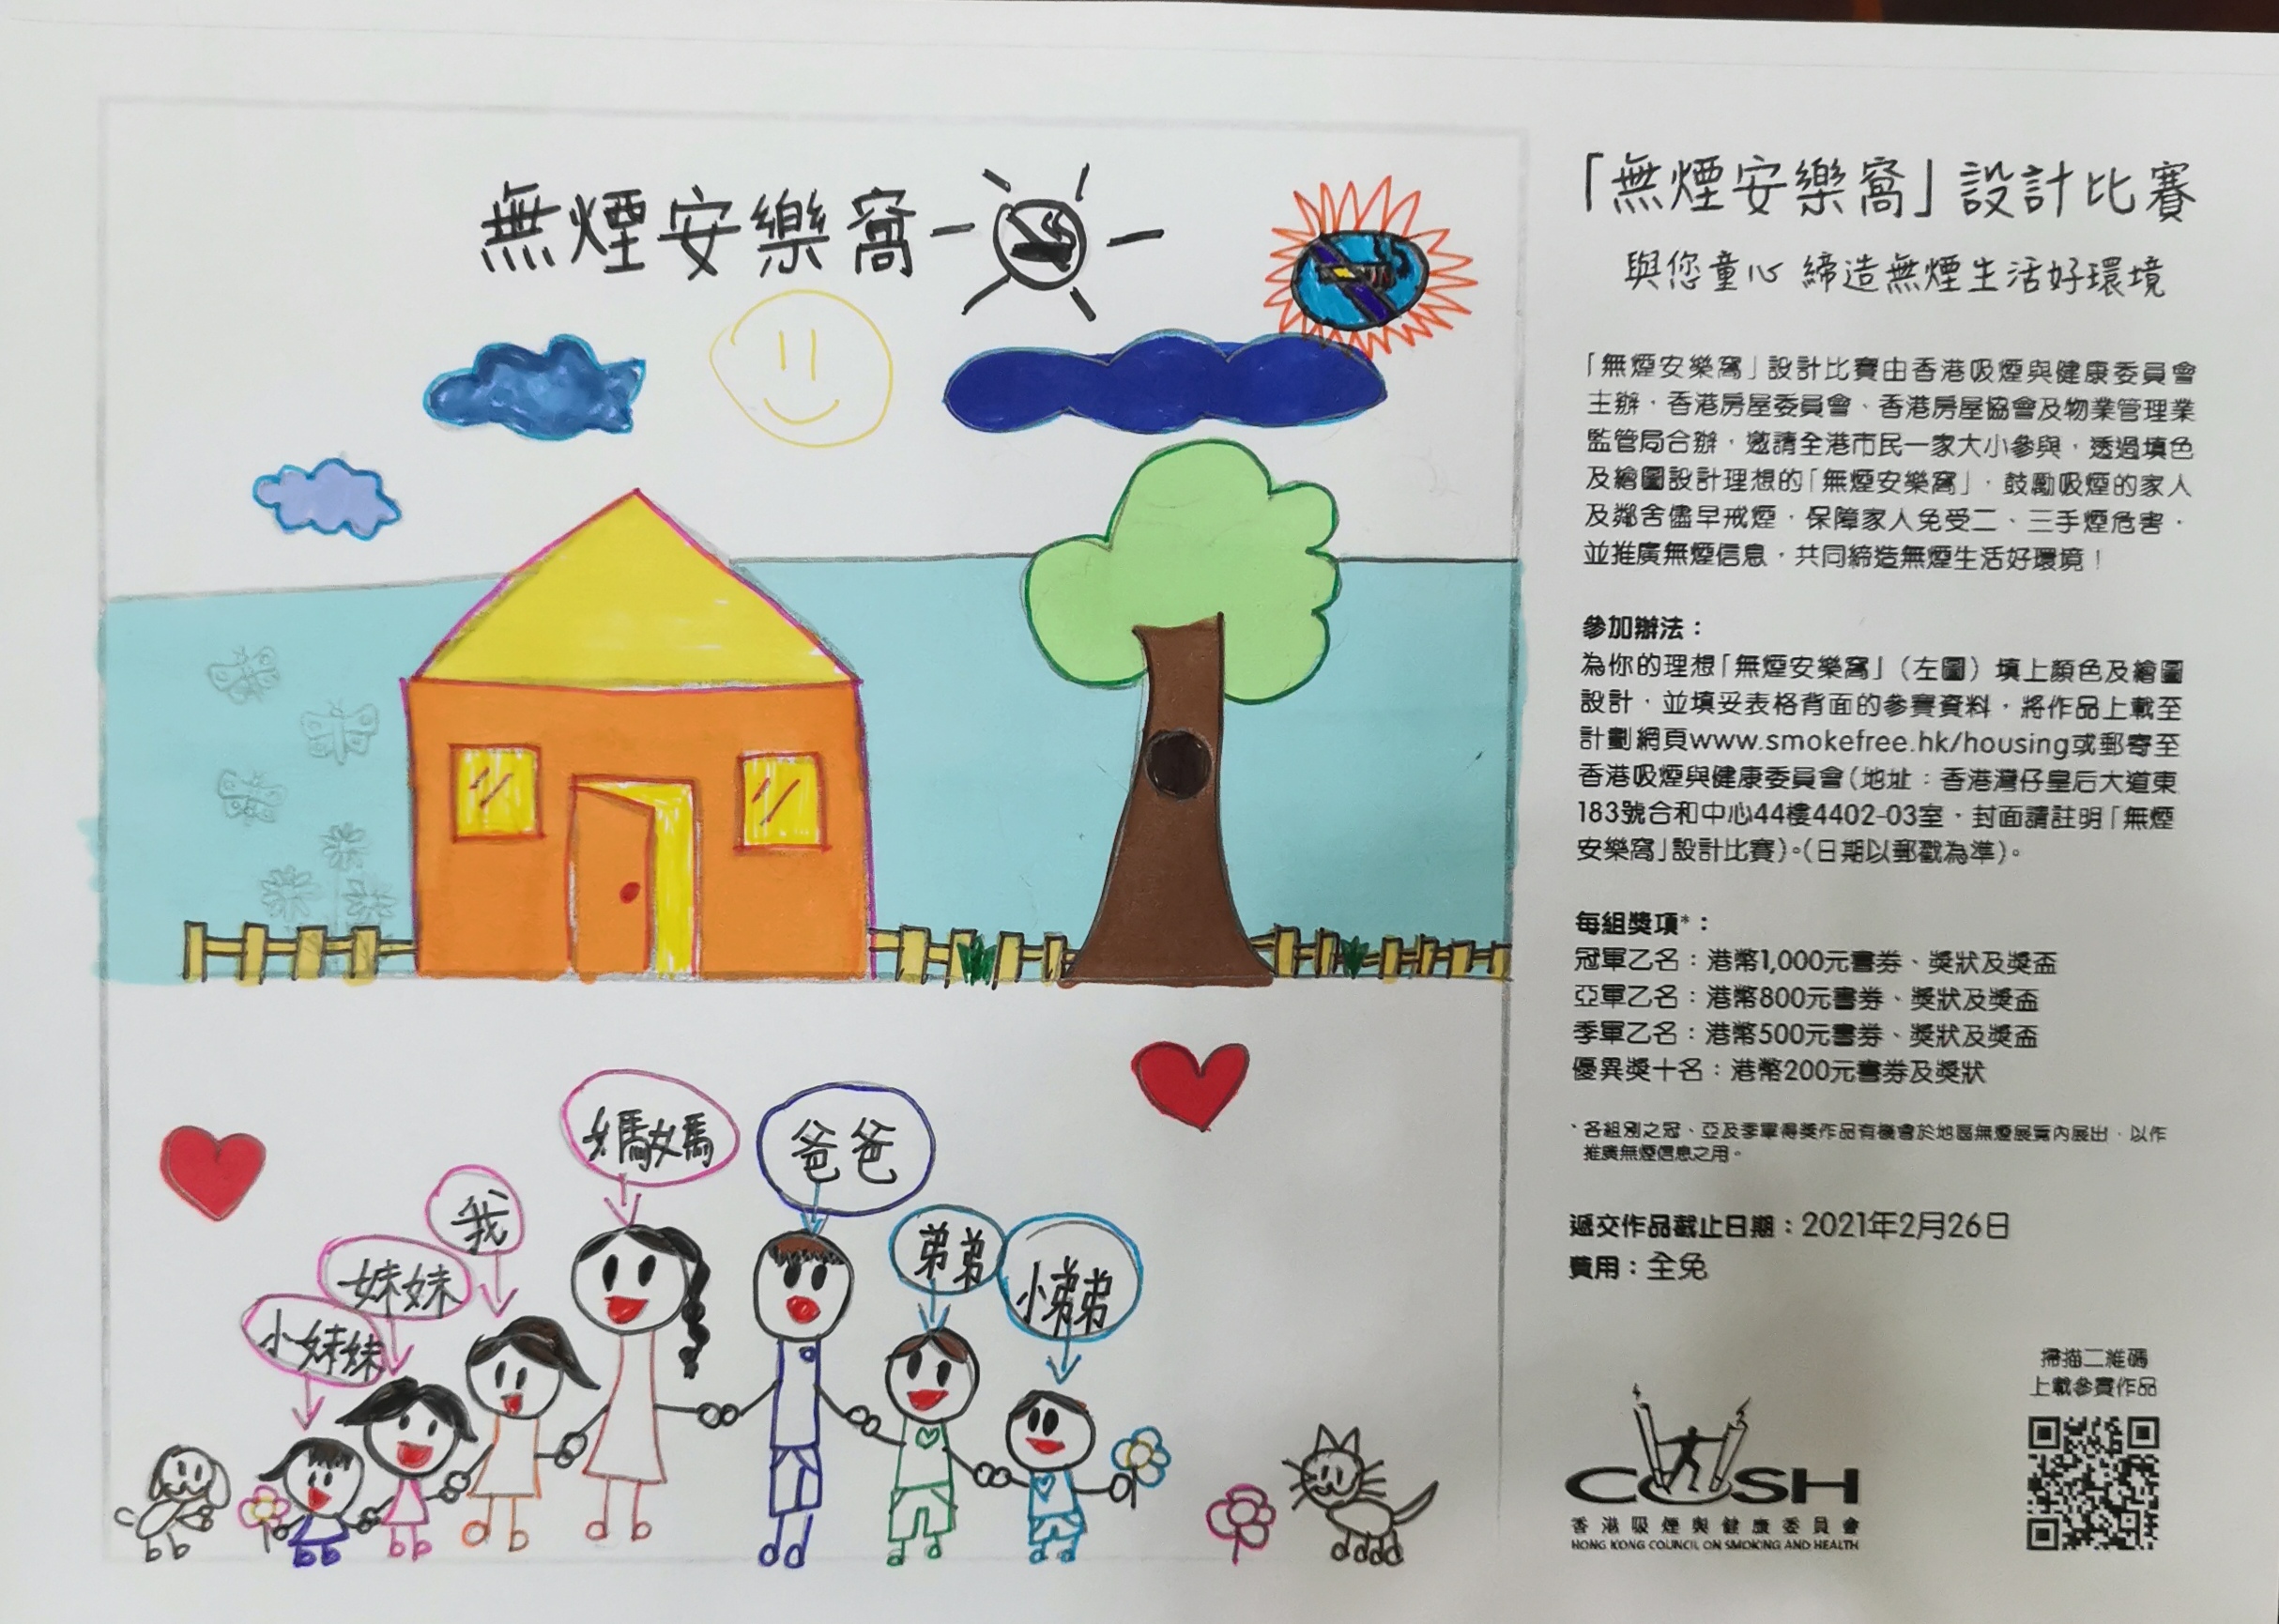 無煙安樂窩
媽媽
爸爸
我
弟弟
小弟弟
妹妹
小妹妹
「無煙安樂窩」設計比賽
與您童心 締造無煙生活好環境
「無煙安樂窩」設計比賽由香港吸煙與健康委員會
主辦，香港房屋委員會、香港房屋協會及物業管理業
監管局合辦，邀請全港市民一家大小參與，透過填色
及繪圖設計理想的「無煙安樂窩」，鼓勵吸煙的家人
及鄰舍儘早戒煙，保障家人免受二、三手煙危害，
並推廣無煙信息，共同締造無煙生活好環境！
參加辦法：
為你的理想「無煙安樂窩」（左圖）填上顏色及繪圖
設計，並填妥表格背面的參賽資料，將作品上載至
計劃網頁www.smokefree.hk/housing或郵寄至
香港吸煙與健康委員會（地址：香港灣仔皇后大道東
183號合和中心44樓4402-03室，封面請註明「無煙
安樂窩」設計比賽）。（日期以郵戳為準）。
每組獎項*：
冠軍乙名：港幣1,000元書券、獎狀及獎盃
亞軍乙名：港幣800元書券、獎狀及獎盃
季軍乙名：港幣500元書券、獎狀及獎盃
優異獎十名：港幣200元書券及獎狀
*各組別之冠、亞及季軍得獎作品有機會於地區無煙展覽內展出，以作
推廣無煙信息之用。
遞交作品截止日期：2021年2月26日
費用：全免
掃描二維碼
上載參賽作品
COSH
香港吸煙與健康委員會
HONG KONG COUNCIL ON SMOKING AND HEALTH